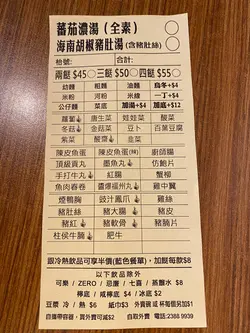 蕃茄濃湯（全素）
海南胡椒豬肚湯(含豬肚絲)
枱號: 合計:
兩餸 $45 三餸 $50 四餸 $55
幼麵 粗麵 油麵 烏冬+$4
米粉 河粉 米線 一丁+$4
公仔麵 菜底 加湯+$4 加底+$12
蘿蔔 唐生菜 娃娃菜 酸菜
冬菇 金菇菜 豆卜 百葉豆腐
紫菜 酸齋 韭菜
陳皮魚蛋 陳皮魚蛋(辣) 廚師腸
頂級貢丸 墨魚丸 仿鮑片
手打牛丸 紅腸 蟹柳
魚肉春卷 醬爆福州丸 雞中翼
煙鴨胸 豉汁鳳爪 雞絲
豬肚絲 豬大腸 豬皮
豬紅 豬軟骨 豬腩片
柱侯牛腩 肥牛
跟冷熱飲品可享半價(藍色餐單), 加餸每款$8
以下飲品除外
可樂 / ZERO / 忌廉 / 七喜 / 蒸餾水 $8
檸底 / 咸檸底 $4 / 冰底 $2
豆漿 冷 / 熱 $6 紙巾$3 外賣碗或杯每個加$1
自攜器容器, 買外賣可減$2 自取外賣電話:2388 9939